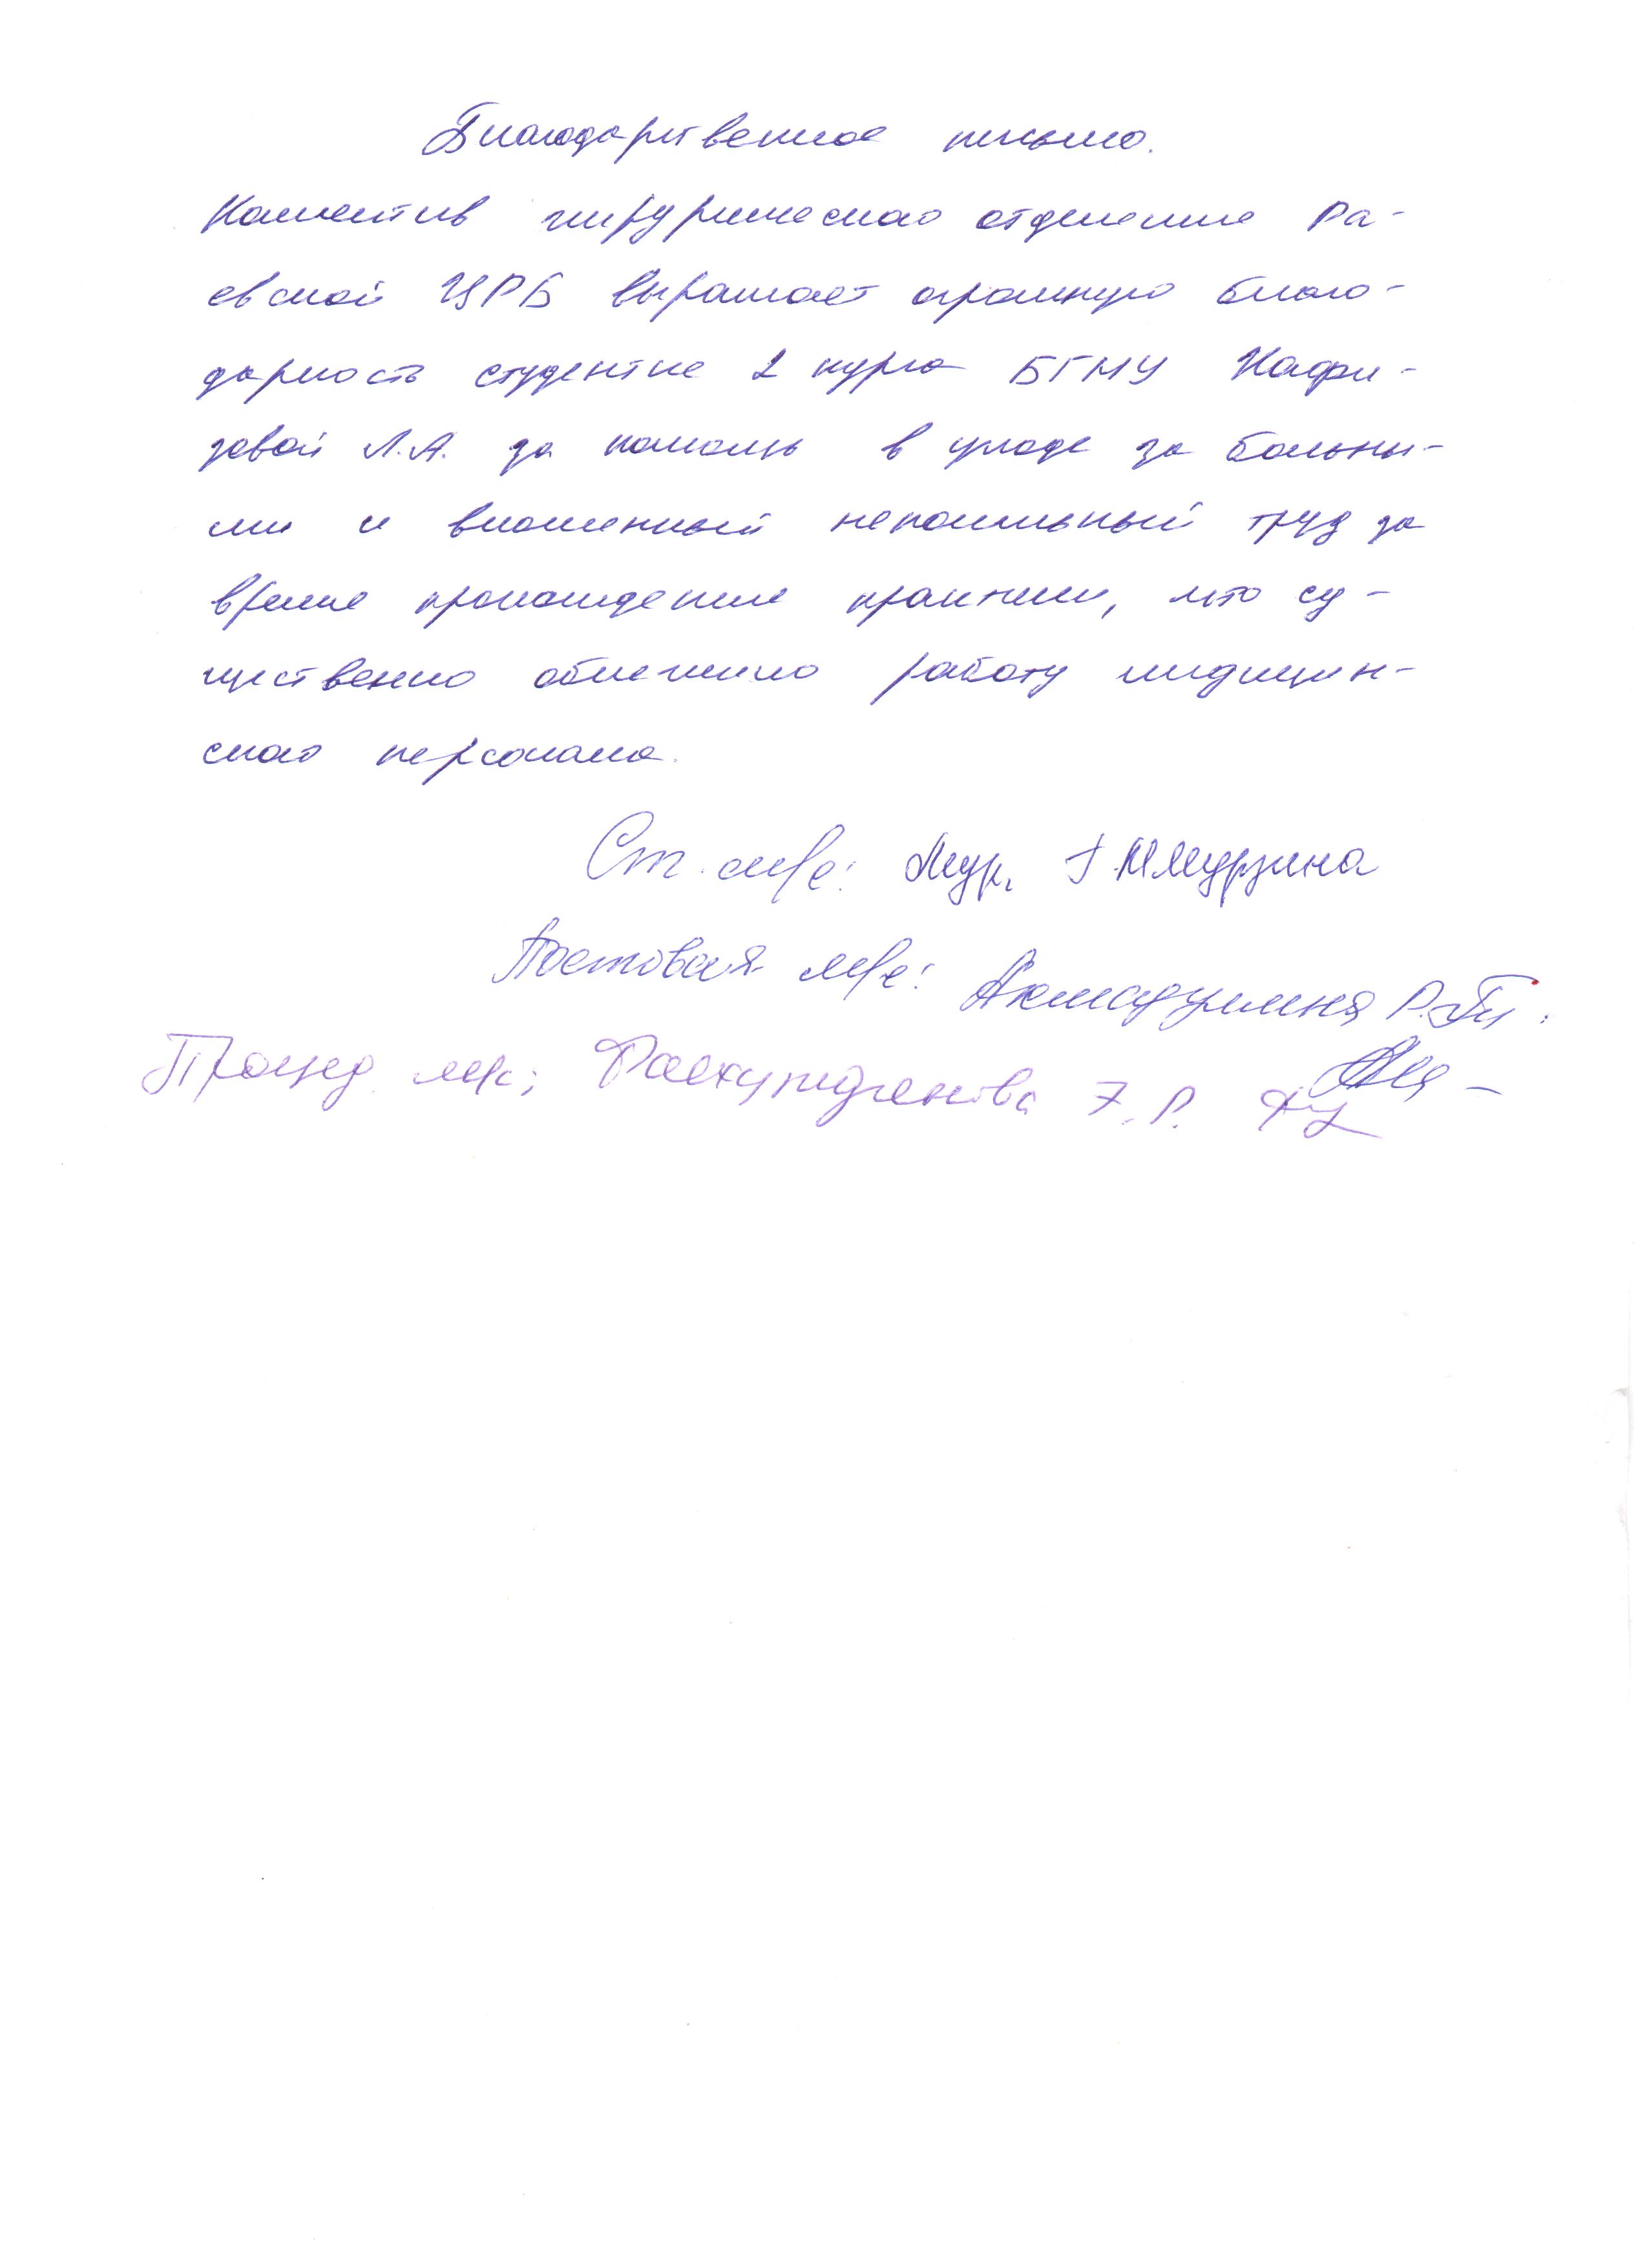 Благодарственное письмо.
Коллектив хирургического отделения Ра-
евской ЦРБ выражает огромную благо-
дарность студентке 2 курса БГМУ Нафи-
зовой Л.А. за помощь в уходе за больны-
ми и вложенный непосильный труд за
время прохождения практики, что су-
щественно облегчило работу медицин-
ского персонала.
Ст. м/с: Мурзина
Постовая м/с: Р.
Процед. м/с: Э.Р.